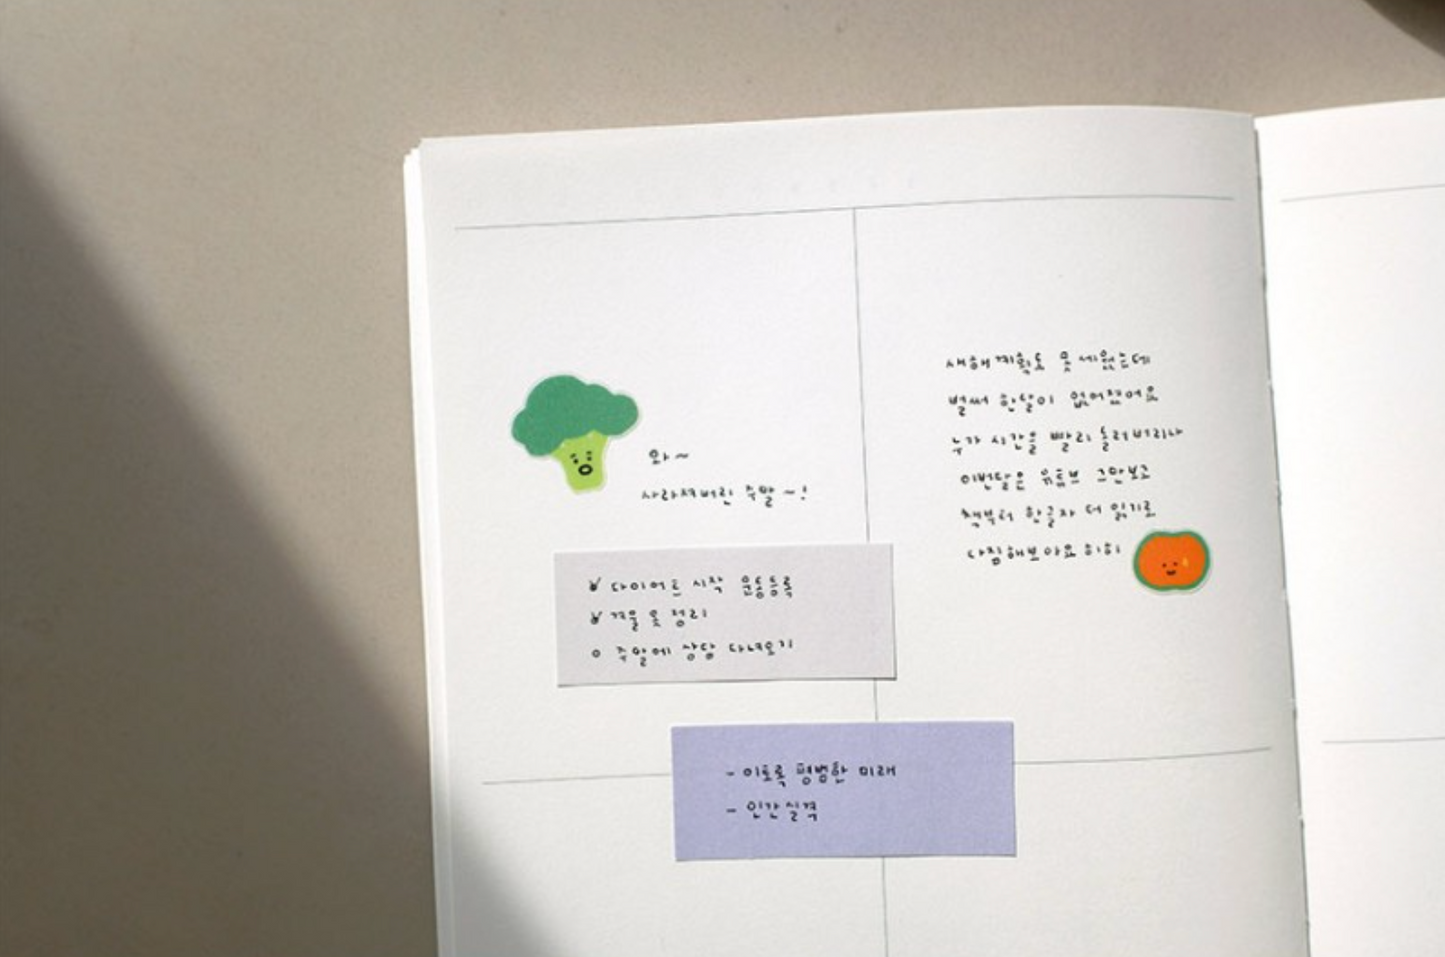 와~
사라져버린 주말~!
다이어트 시작 운동등록
겨울 옷 정리
주말에 상담 다녀오기
- 이토록 평범한 미래
- 인간실격
새해계획도 못 세웠는데
벌써 한달이 없어졌어요
누가 시간을 빨리 돌려버리나
이번달은 유튜브 그만보고
책부터 한글자 더 읽기로
다짐해보아요 히히